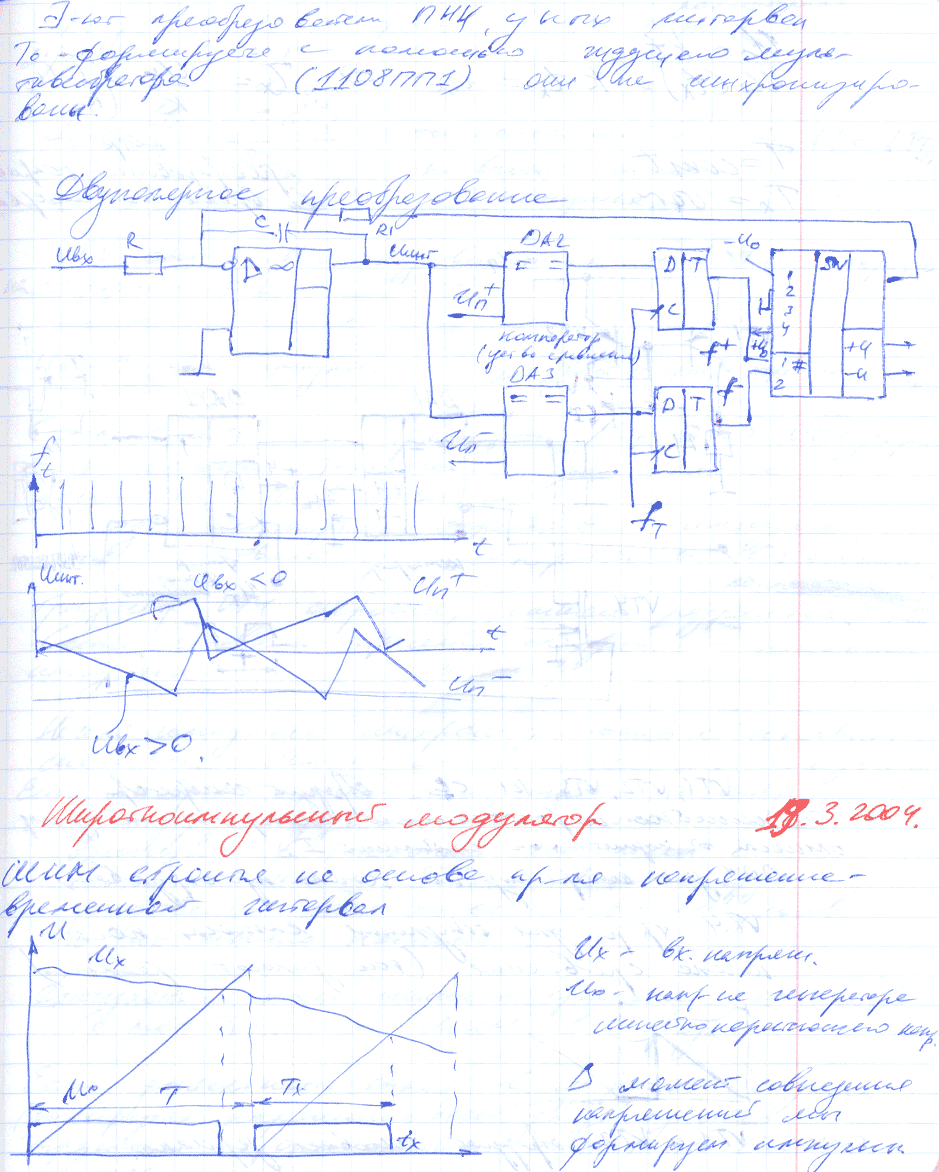 ∃-ют преобразователи ПНЧ, у них интервал
T₀ - формируется с помощью ждущего муль-
тивибратора (1108ПП1) они не синхронизиро-
ваны.
Двуполярное преобразование
C
R1
Uвх
R
▷ ∞
Uинт
DA2
= =
Uп⁺
компаратор
(устр-во сравнения)
DA3
= =
Uп⁻
D T
C
D T
C
f⁺
f⁻
fт
-U₀
+U₀
1
2
3
4
SW
1 #
2
+U
-U
ft
t
Uинт.
Uвх < 0
Uп⁺
t
Uп⁻
Uвх > 0.
Широтноимпульсный модулятор
18.3.2004.
ШИМ строится на основе пр-ля напряжение-
временной интервал
U
Ux
U₀
T
Tx
tx
Ux - вх. напряж.
U₀ - напр-ие генератора
линейно нарастающего напр.
В момент совпадения
напряжений мы
формируем импульс